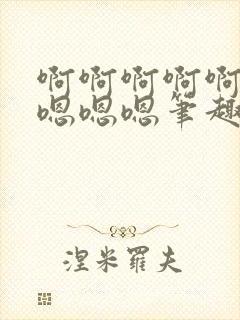 啊啊啊啊啊
嗯嗯嗯笔趣
涅米羅夫